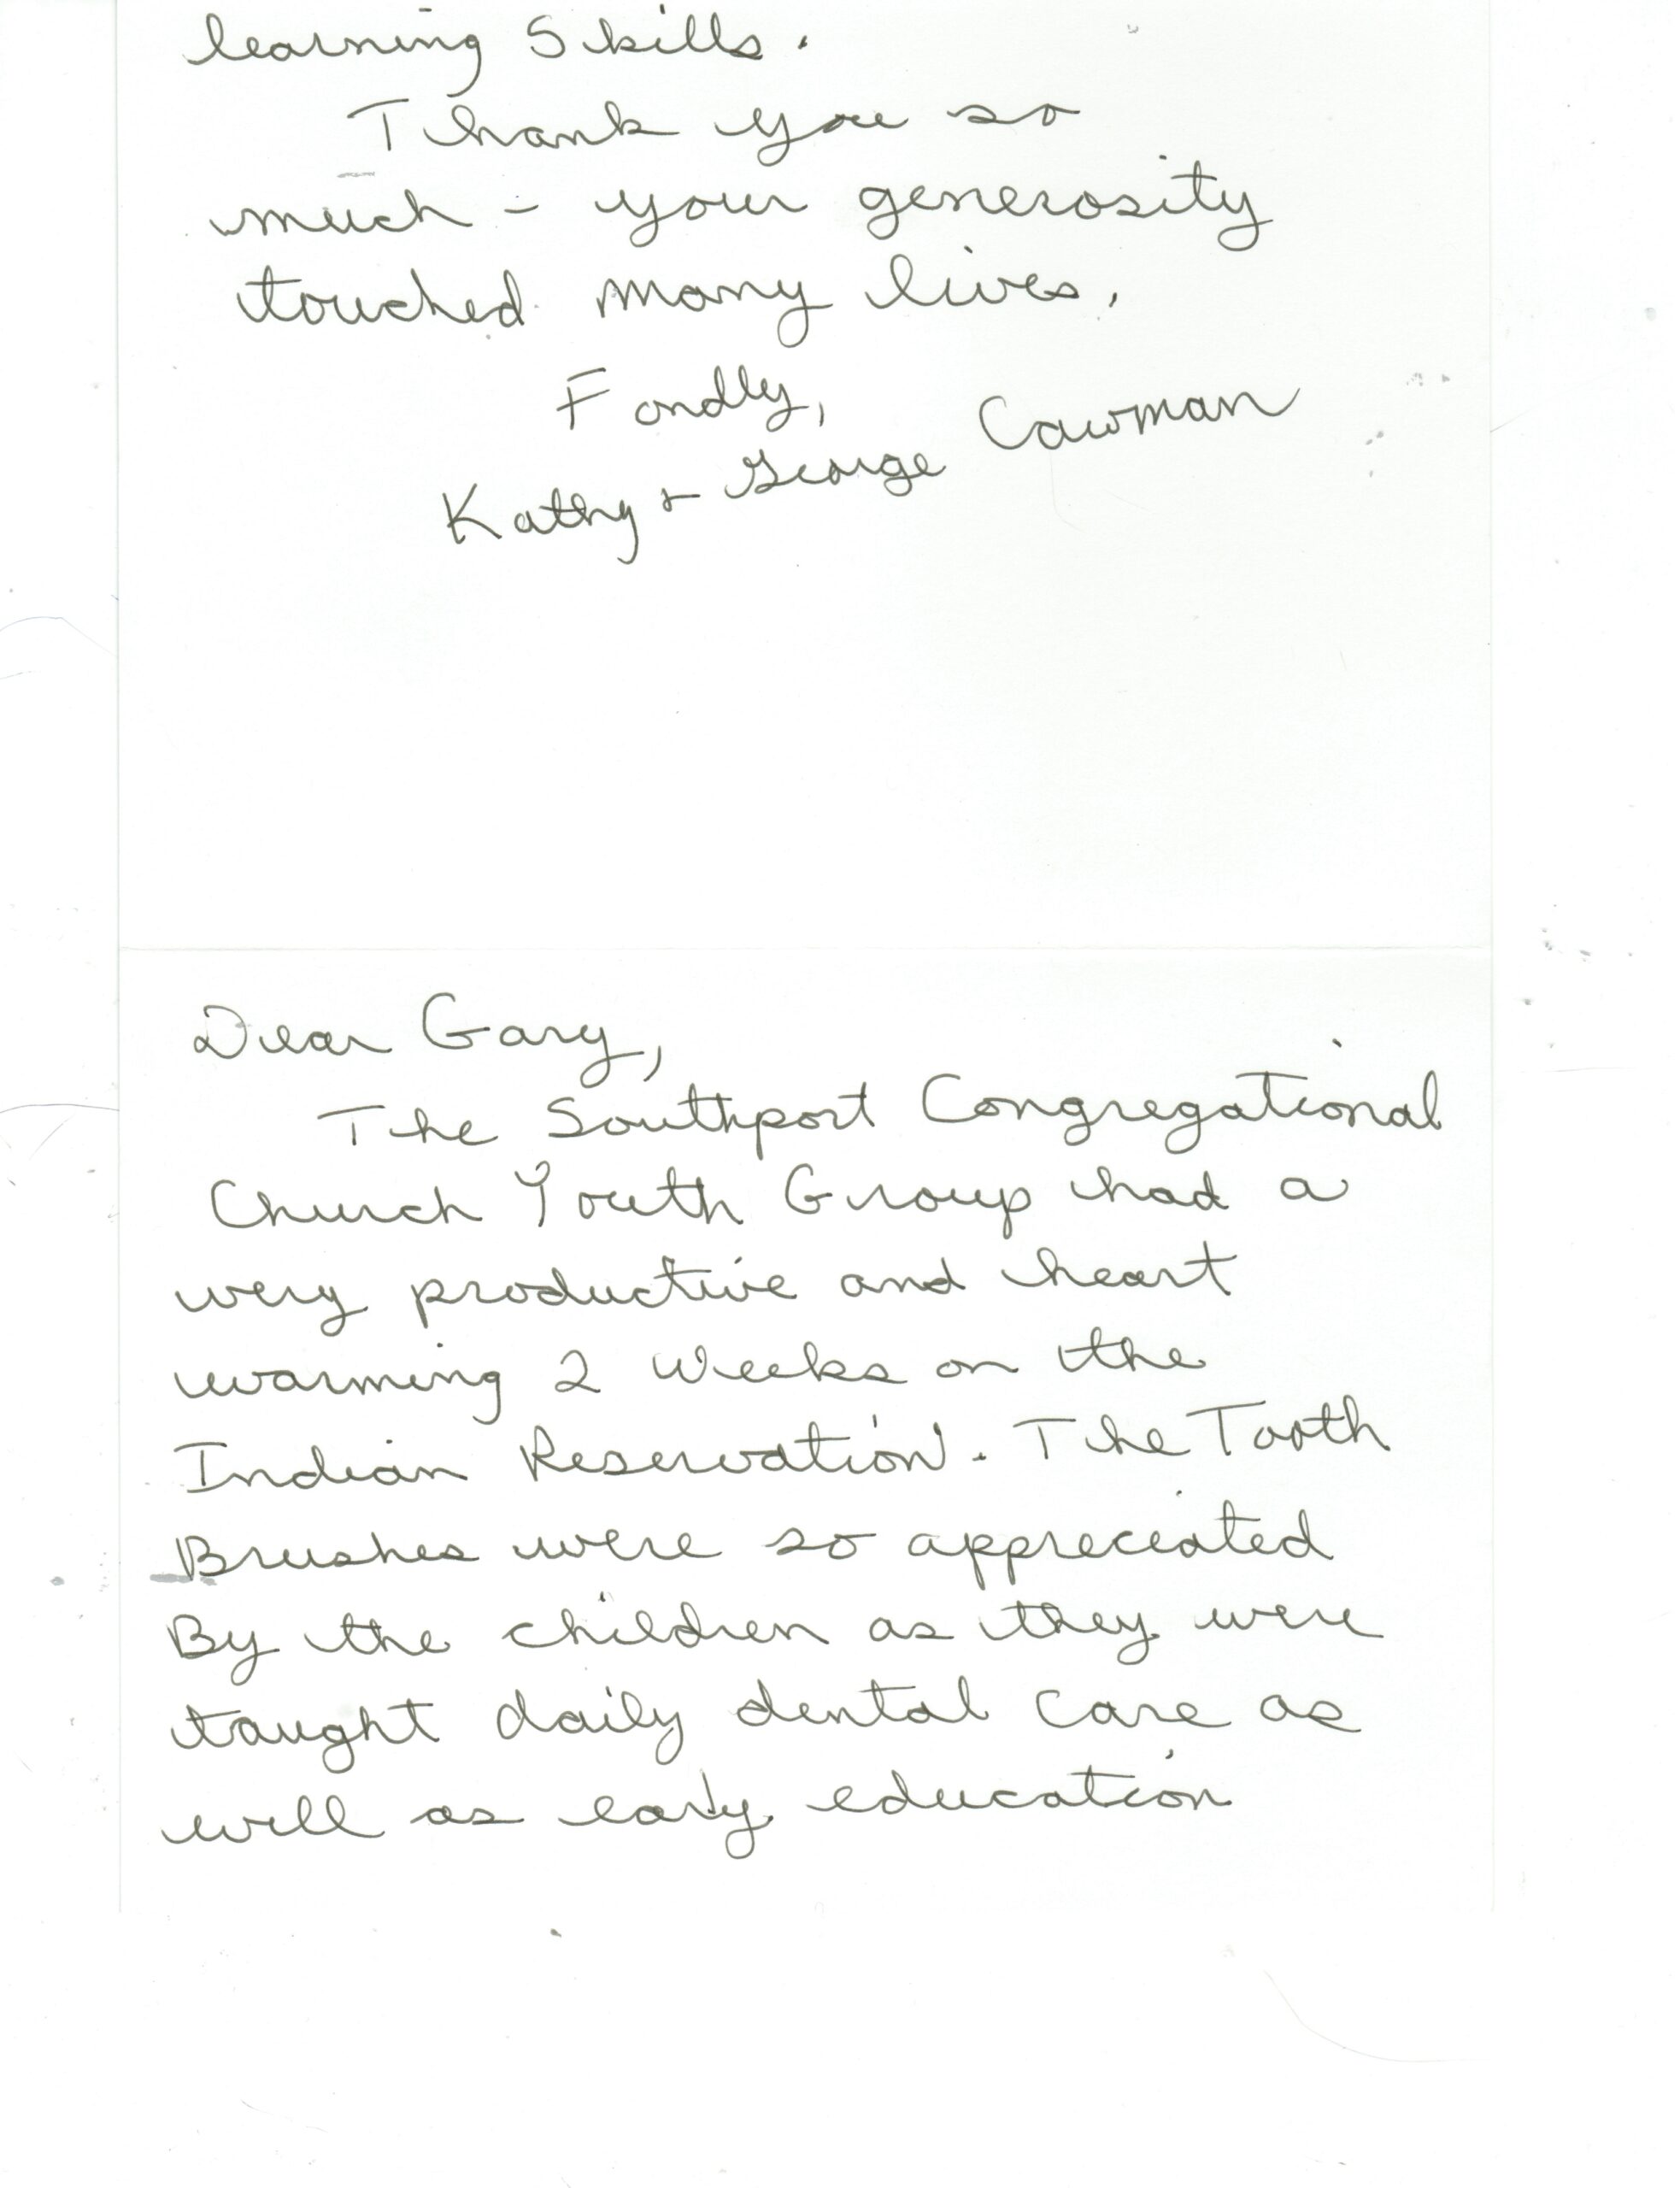 learning Skills.
Thank you so
much - your generosity
touched many lives.
Fondly,
Kathy + George Cawman
Dear Gary,
The Southport Congregational
Church Youth Group had a
very productive and heart
warming 2 weeks on the
Indian Reservation. The Tooth
Brushes were so appreciated
By the children as they were
taught daily dental care as
well as early education